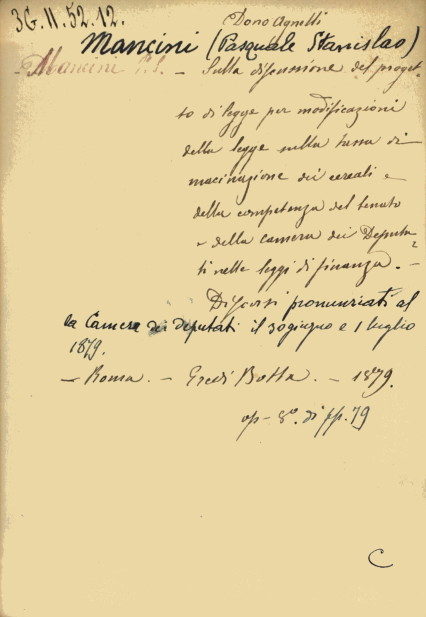 3G.11.52.12.
Dono Agnetti
Mancini (Pasquale Stanislao)
Mancini P.S. — Sulla discussione del proget-
to di legge per modificazioni
della legge sulla tassa di
macinazione dei cereali e
della competenza del Senato
e della camera dei Deputa-
ti nelle leggi di finanza. —
Discorsi pronunziati al
la Camera dei deputati il 30 giugno e 1 luglio
1879.
— Roma. — Eredi Botta. — 1879.
op- 8°. di pp. 79
C